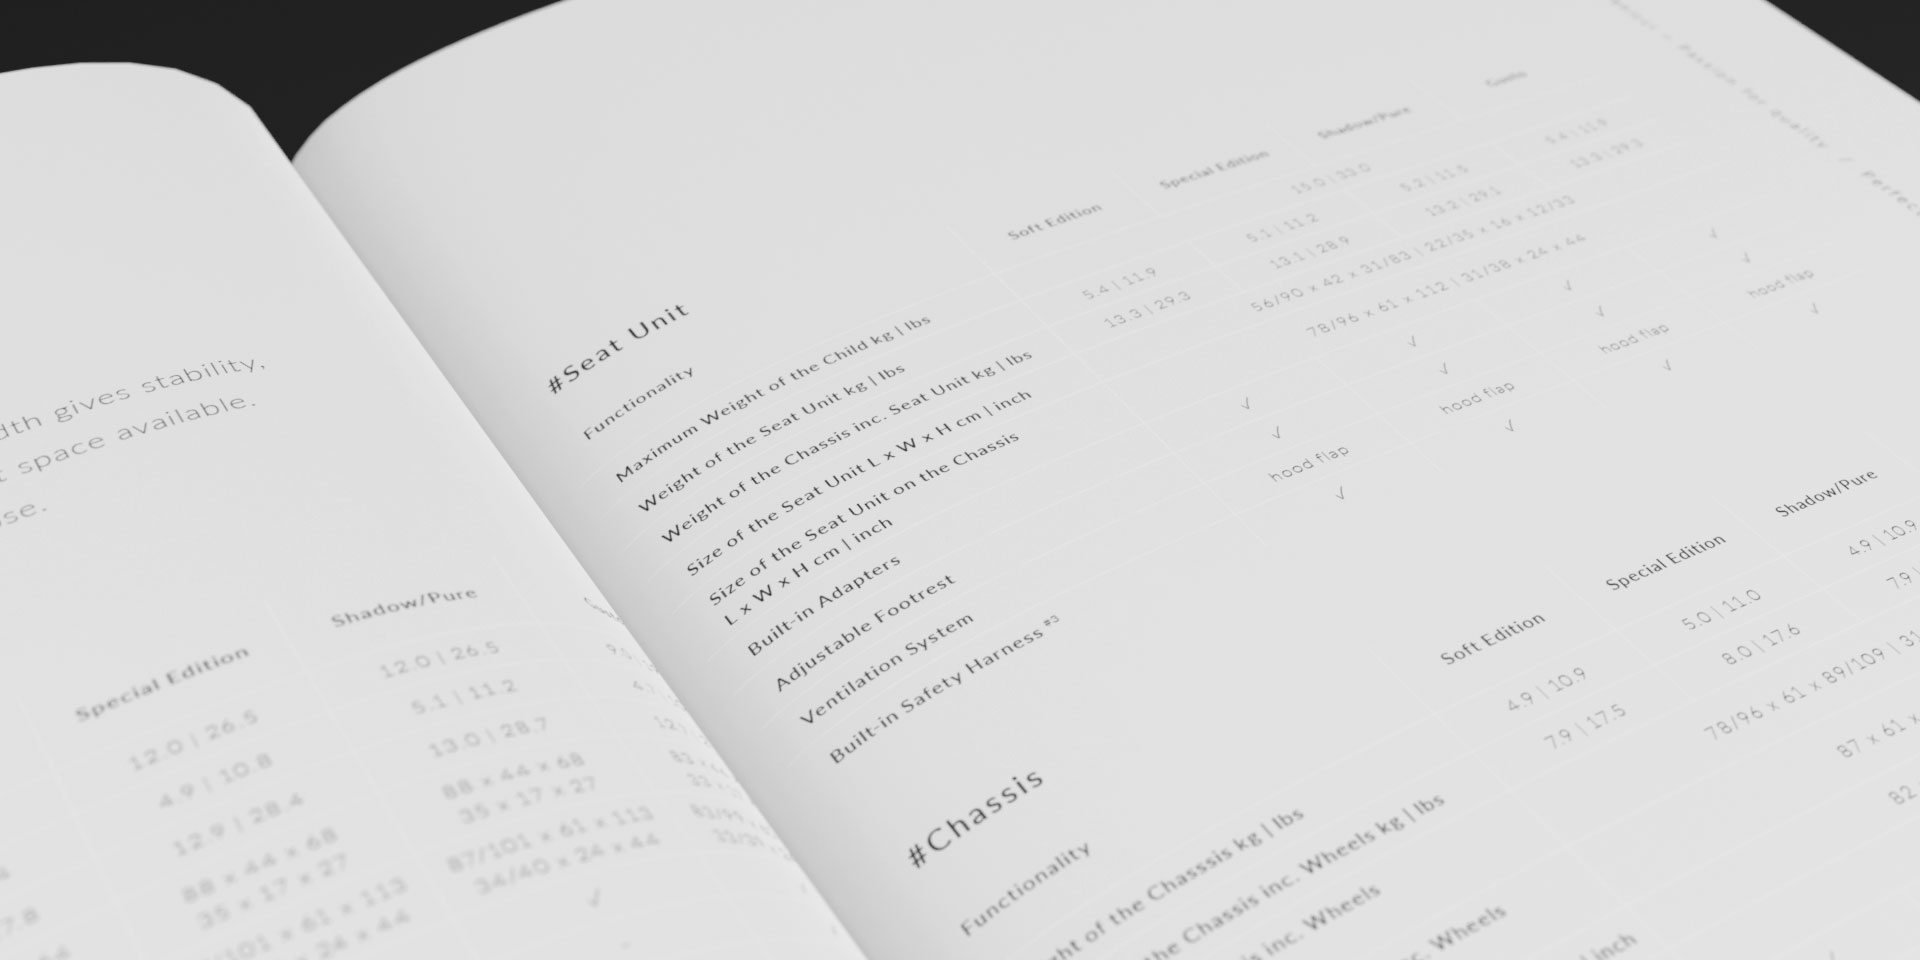 dth gives stability,
space available.
Special Edition
Shadow/Pure
12.0 | 26.5
12.0 | 26.5
4.9 | 10.8
5.1 | 11.2
12.9 | 28.4
13.0 | 28.7
88 x 44 x 68
35 x 17 x 27
88 x 44 x 68
35 x 17 x 27
/101 x 61 x 113
x 24 x 44
87/101 x 61 x 113
34/40 x 24 x 44
√
#Seat Unit
Functionality
Soft Edition
Special Edition
Shadow/Pure
Maximum Weight of the Child kg | lbs
15.0 | 33.0
Weight of the Seat Unit kg | lbs
5.4 | 11.9
5.1 | 11.2
5.2 | 11.5
5.4 | 11.9
Weight of the Chassis inc. Seat Unit kg | lbs
13.3 | 29.3
13.1 | 28.9
13.2 | 29.1
13.3 | 29.3
Size of the Seat Unit L x W x H cm | inch
56/90 x 42 x 31/83 | 22/35 x 16 x 12/33
Size of the Seat Unit on the Chassis
L x W x H cm | inch
78/96 x 61 x 112 | 31/38 x 24 x 44
Built-in Adapters
√
√
√
√
Adjustable Footrest
√
√
√
√
Ventilation System
hood flap
hood flap
hood flap
hood flap
Built-in Safety Harness #3
√
√
√
√
#Chassis
Functionality
Soft Edition
Special Edition
Shadow/Pure
ght of the Chasssis kg | lbs
4.9 | 10.9
5.0 | 11.0
4.9 | 10.9
the Chassis inc. Wheels kg | lbs
7.9 | 17.5
8.0 | 17.6
7.9 |
inc. Wheels
78/96 x 61 x 89/109 | 31
c. Wheels
87 x 61 x
inch
82
Passion for Quality /